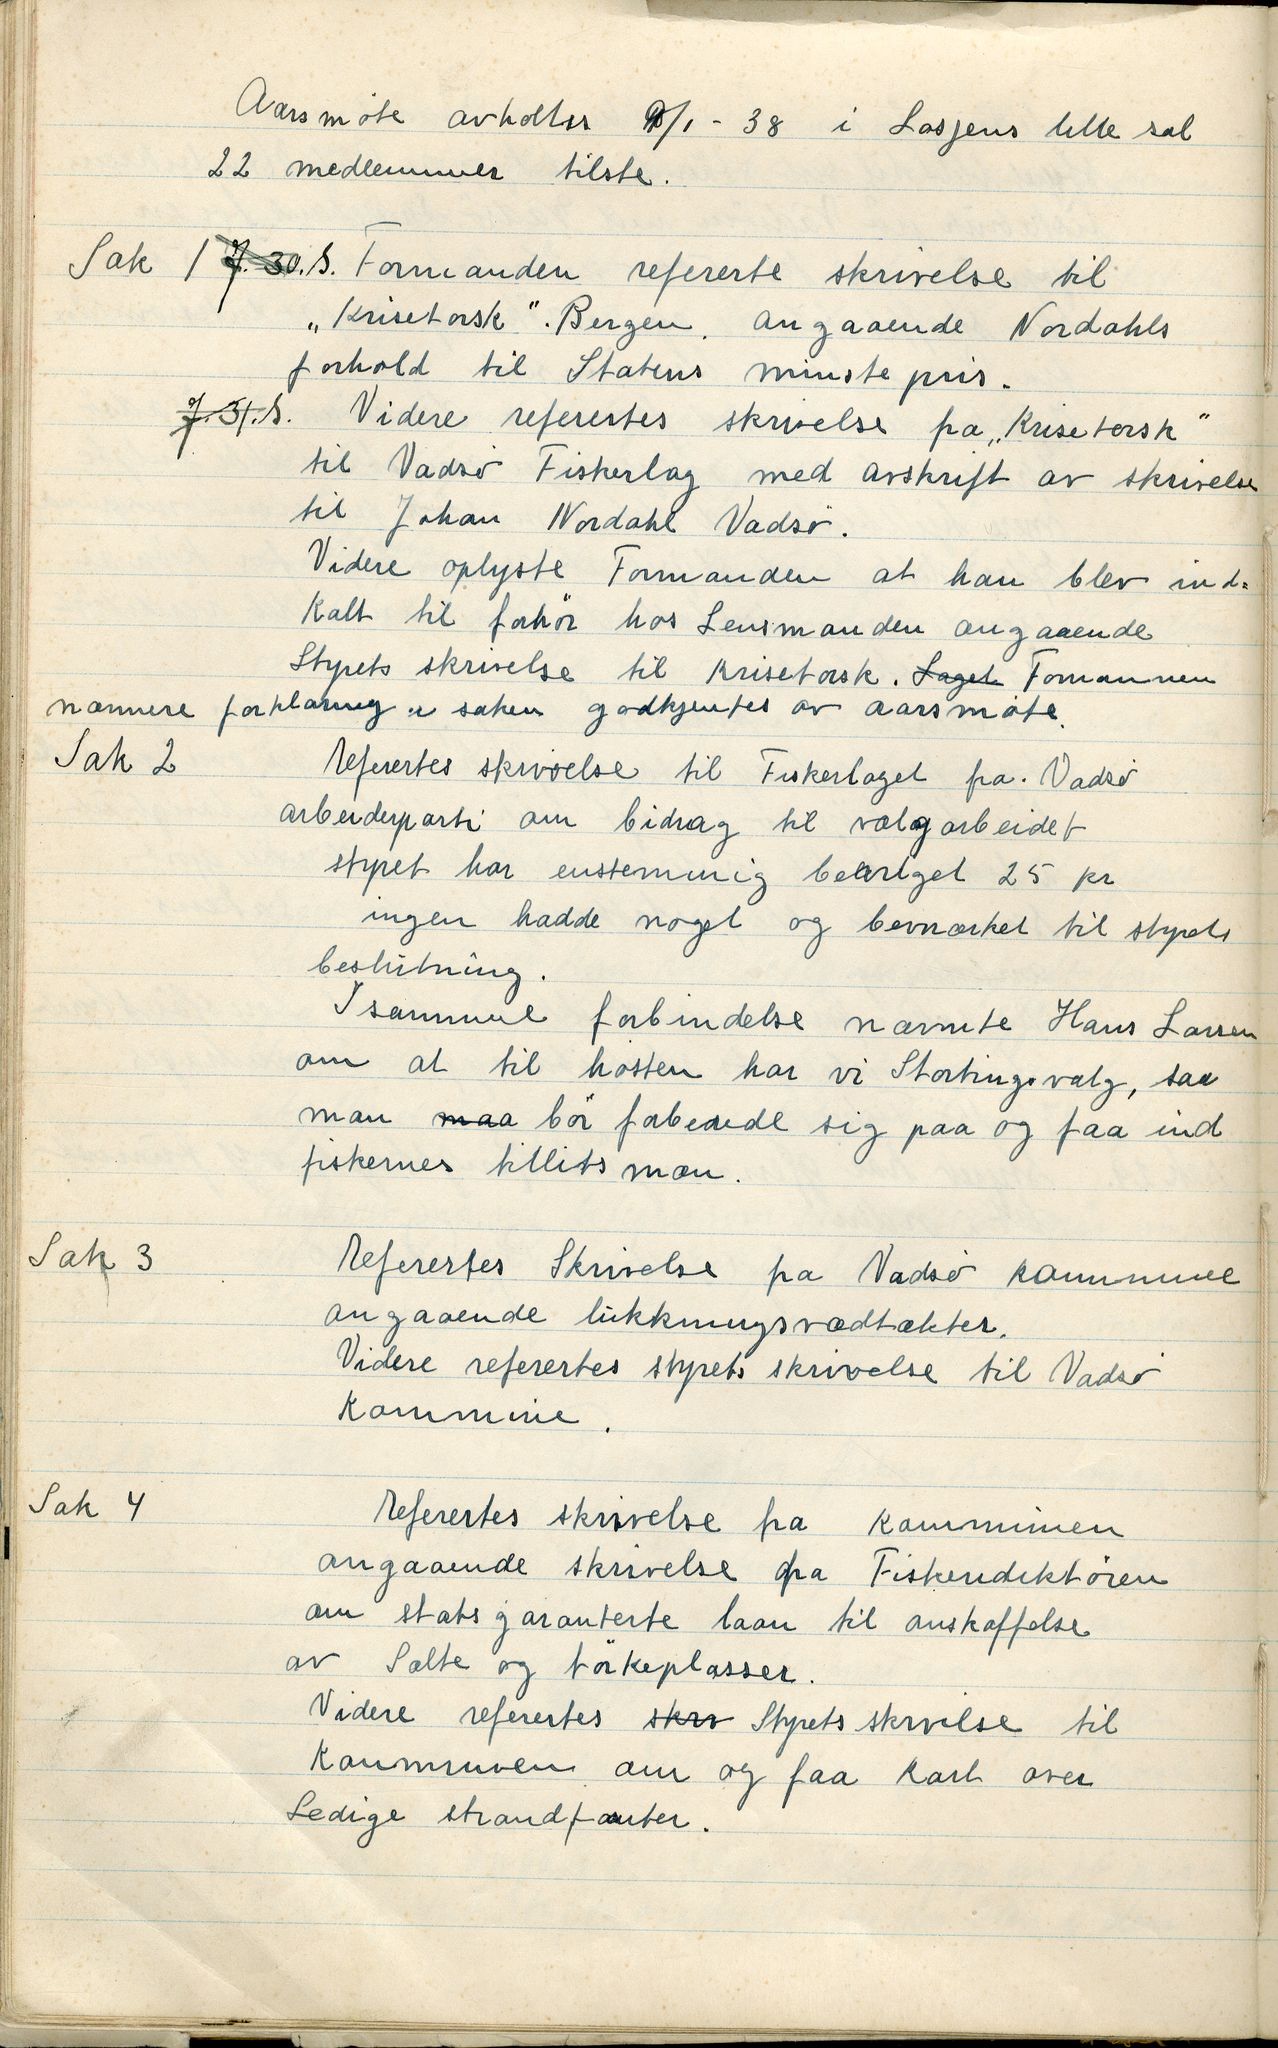 Aarsmöte avholtes /1 - 38 i Losjens lille sal
22 medlemmer tilste.
Sak 1 J. 30. S. Formanden refererte skrivelse til
„Krisetorsk". Bergen. angaaende Nordahls
forhold til Statens minste pris.
J. 31. S. Videre refertes skrivelse fra „Krisetorsk"
til Vadsö Fiskerlag med avskrift av skrivelse
til Johan Nordahl Vadsö.
Videre oplyste Formanden at han blev ind=
kalt til forhör hos Lensmanden angaaende
Styrets skrivelse til Krisetorsk. Laget Fomannen
nærmere forklaring i saken godkjentes av aarsmöte.
Sak 2 Referertes skrivelse til Fiskerlaget fra. Vadsö
arbeiderparti om bidrag til valgarbeidet
styret har enstemmig bevilget 25 kr
ingen hadde noget og bemærket til styrets
beslutning.
I samme forbindelse nævnte Hans Larsen
om at til hösten har vi Stortingsvalg, saa
man maa bör forberede sig paa og faa ind
fiskernes tillitsmæn.
Sak 3 Referertes Skrivelse fra Vadsö kommune
angaaende lukkningsvædtækter.
Videre referertes styrets skrivelse til Vadsö
Kommune.
Sak 4 Referertes skrivelse fra kommunen
angaaende skrivelse fra Fiskeridiktören
om statsgaranterte laan til anskaffelse
av Salte og törkeplasser.
Videre referertes skriv Styrets skrivilse til
Kommunen om og faa kart over
Ledige strandtomter.